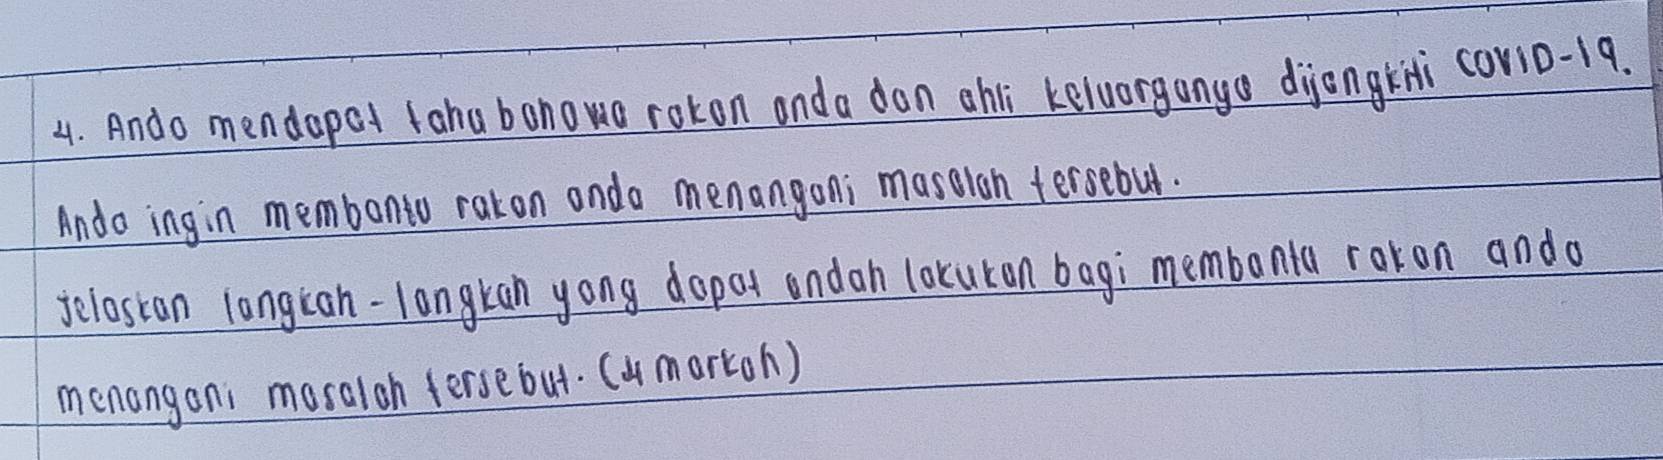 4. Anda mendapat tahu bahawa rakan anda dan ahli keluarganya dijangkiti COVID-19.
Anda ingin membantu rakan anda menangani masalah tersebut.
Jelaskan langkah-langkah yang dapat andah lakukan bagi membantu rakan anda
menangani masalah tersebut. (4 markah)